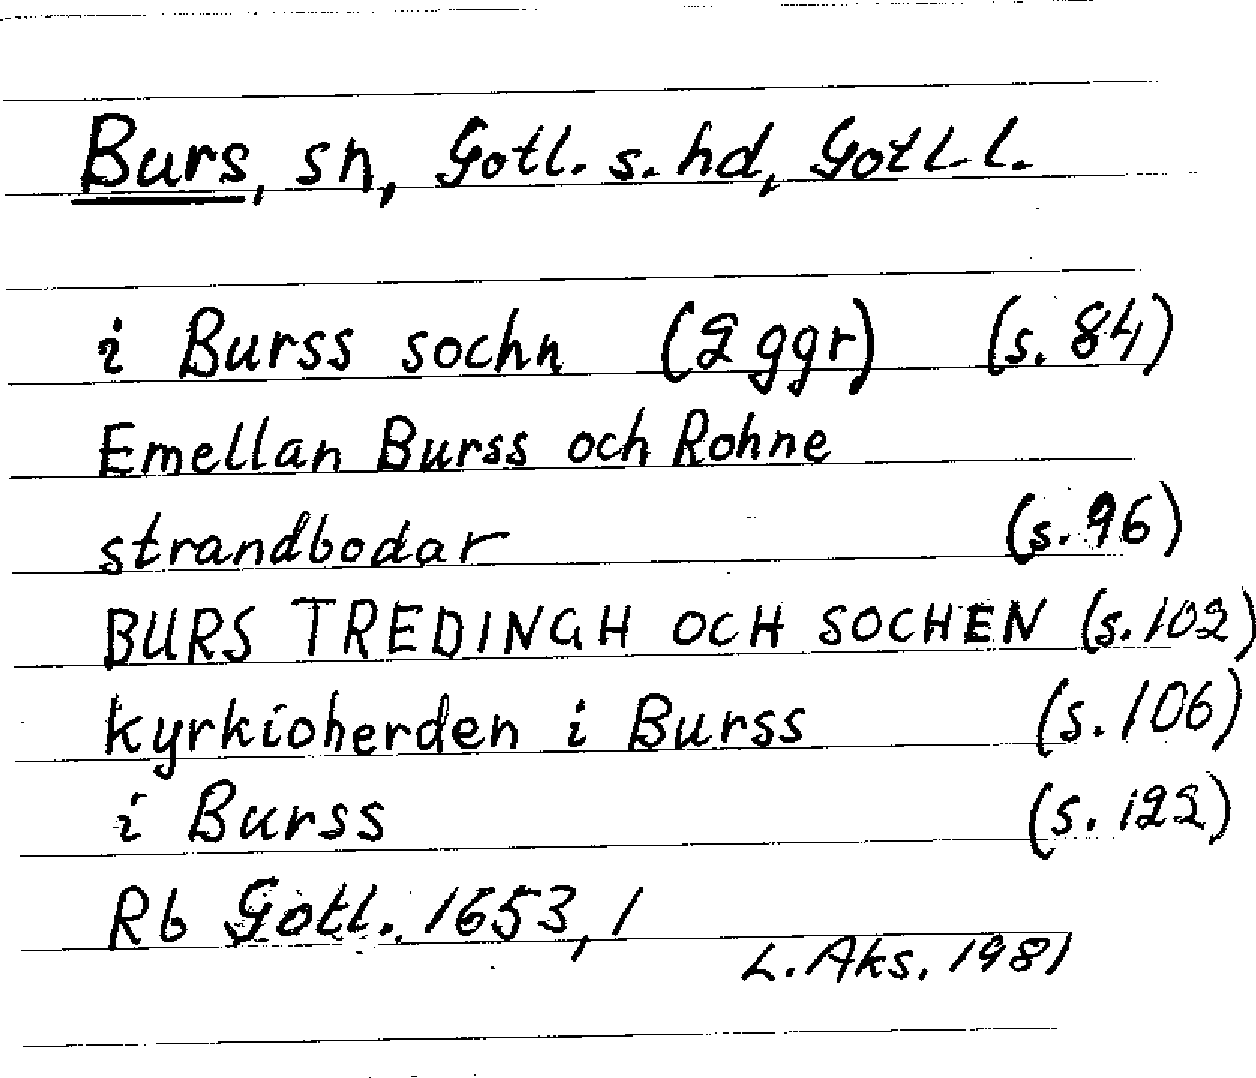 Burs, sn, Gotl. s. hd, Gotl. l.
i Burss sochn (2 ggr) (s. 84)
Emellan Burss och Rohne
strandbodar (s. 96)
BURS TREDINGH OCH SOCHEN (s. 102)
kyrkioherden i Burss (s. 106)
i Burss (s. 122)
Rb Gotl. 1653, 1
L. Aks. 1981